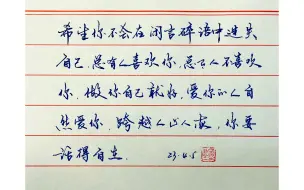 希望你不会在闲言碎语中迷失
自己,总有人喜欢你,总有人不喜欢
你,做你自己就好,爱你的人自
然爱你,跨越人山人海,你要
活得自在.
23.4.5